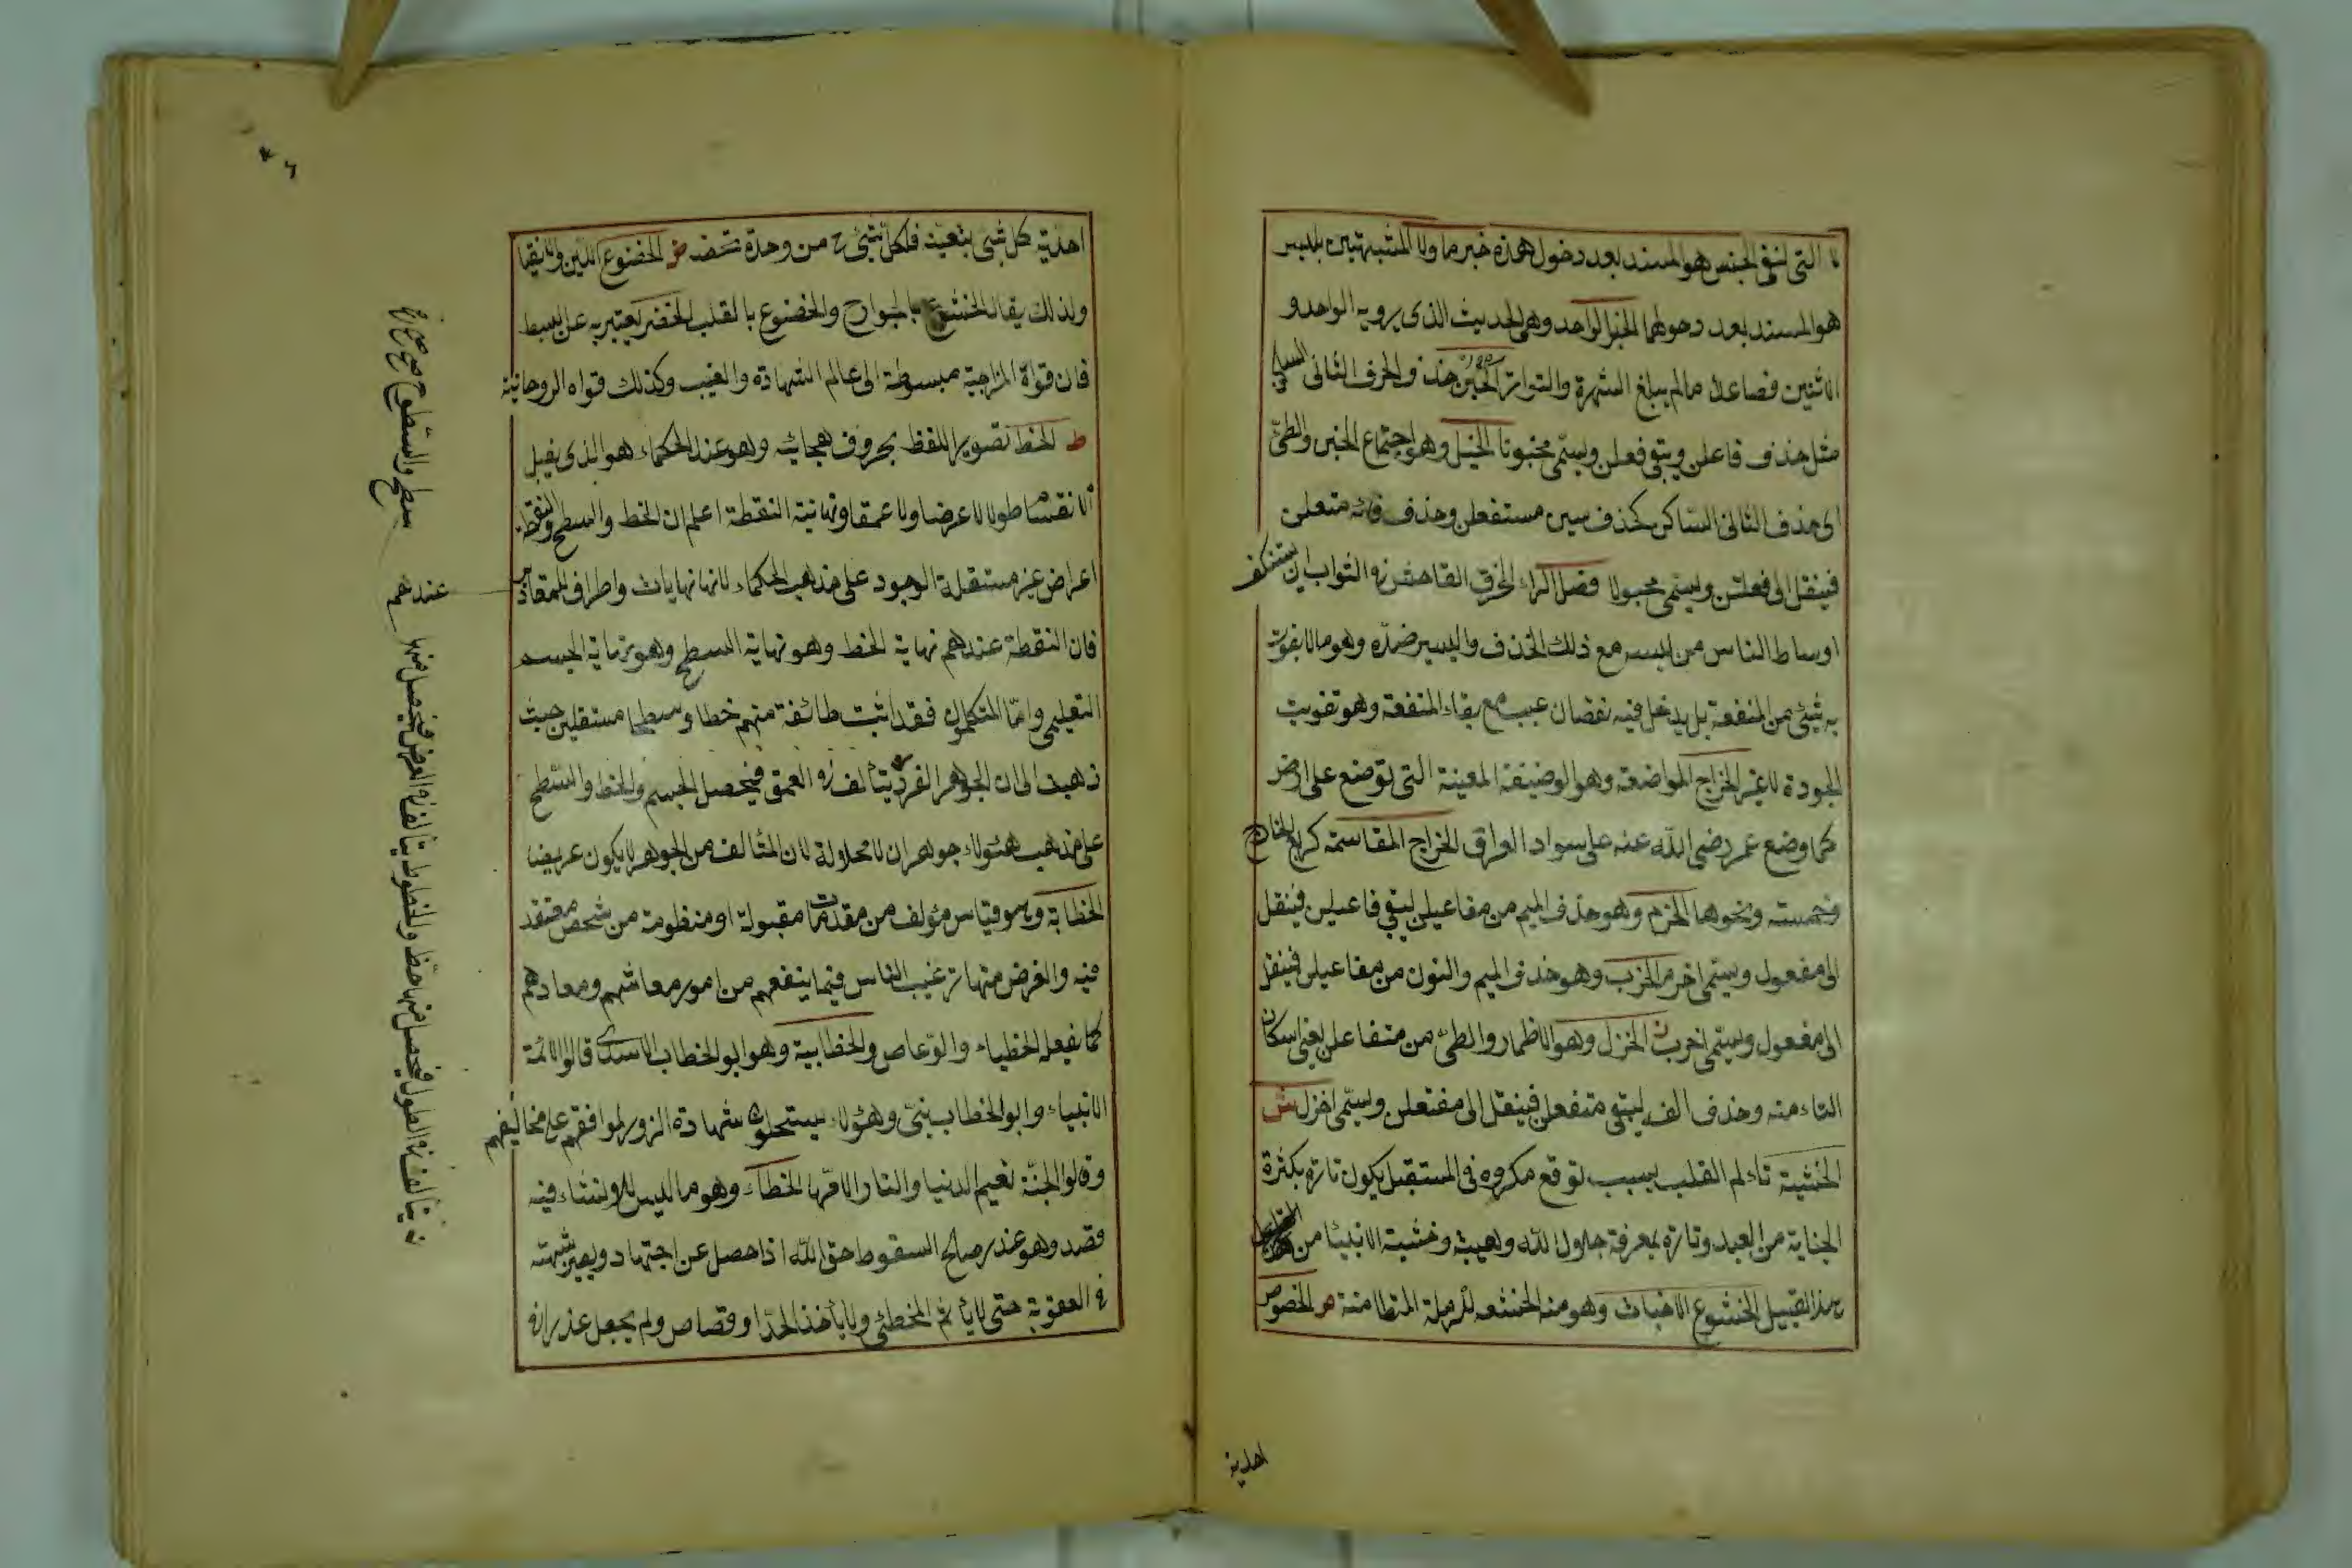 لا التى لنفى الجنس هو المسند بعد دخول هذه خبر ما ولا المشبهتين بليس
هو المسند بعد دخولهما الخبر الواحد وهى الحديث الذى يرويه الواحد و
الاثنين فصاعدا مالم يبلغ الشهرة والتواتر الخبن حذف الحرف الثانى الساكن
مثل حذف فاعلن ويبقى فعلن ويسمى مخبونا الخبل وهو اجتماع الخبن والطى
اى حذف الثانى الساكن كحذف سين مستفعلن وحذف فائه متعلن
فينقل الى فعلتن ويسمى مخبولا فصل الراء الخرق الفاحش فى الثواب ان يستنكف
اوساط الناس من لبسه مع ذلك الخذف واليسير ضده وهو مالا يفوت
به شئ من المنفعة بل يدخل فيه نقصان عيب مع بقاء المنفعة وهو تفويت
الجودة لا غير الخراج المواضعة وهو الوضيفة المعينة التى توضع على ارض
كما وضع عمر رضى الله عنه على سواد العراق الخراج المقاسمة كربع الخارج
وخمسته ونحوها الخرم وهو حذف الميم من مفاعيلن ليبقى فاعيلن فينقل
الى مفعول ويسمى اخرم الخرب وهو حذف الميم والنون من مفاعيلن فينقل
الى مفعول ويسمى اخرب الخزل وهو الاظمار والطى من متفاعلن يعنى اسكان
التاء منه وحذف الف ليبقى متفعلن فينقل الى مفتعلن ويسمى اخزل ش
الخشية تاءلم القلب بسبب توقع مكروه فى المستقبل يكون تارة بكثرة
الجناية من العبد وتارة بمعرفة جلال الله وهيبته وخشية الانبيا من
هذا القبيل الخشوع الاخبات وهو منه الخشعه للرملة المتطامنة ص الخصوص
احديه
احدية كل شئ بتعينه فلكل شئ ح من وحدة تخصه ض الخضوع اللين والانقيا
ولذلك يقال الخشوع بالجوارح والخضوع بالقلب الخضر يعتبر به عن البسط
فان قواة المزاجية مبسوطة الى عالم الشهادة والغيب وكذلك قواه الروحانية
ط الخط تصوير اللفظ بحروف هجائيه وهو عند الحكماء هو الذى يقبل
الانقسام طولا لا عرضا ولا عمقا ونهانية النقطة اعلم ان الخط والسطح والنقطة
اعراض غير مستقلة الوجود على مذهب الحكماء لانها نهايات واطراف للمقادير
فان النقطة عندهم نهاية الخط وهو نهاية السطح وهو نهاية الجسم
التعليمى واما المتكلمون فقد اثبت طائفة منهم خطا وسطحا مستقلين حيث
ذهبت الى ان الجوهر الفرد يتألف فى العمق فيحصل الجسم والخط والسطح
على مذهب هئولاء جوهران لا محلولة لان المتألف من الجوهر لا يكون عريضا
الخطابة وهو قياس مؤلف من مقدمات مقبولة او منظومة من شخص معتقد
فيه والغرض منها ترغيب الناس فيما ينفعهم من امور معاشهم ومعادهم
كما يفعله الخطباء والوعاص والخطابية وهو ابو الخطاب الاسدى قالوا الائمة
الانبياء وابو الخطاب بنى وهؤلاء يستحلون شهادة الزور لموافقهم على مخاليفهم
وقالوا الجنة نعيم الدنيا والنار الامها الخطاء وهو ما ليس للانسان فيه
قصد وهو عذر صالح السقوط حق الله اذا حصل عن اجتهاد ويعير شبهته
فى العقوبة حتى لا يأثم المخطئ ولا يأخذ الحد او قصاص ولم يجعل عذرا فى
عندهم
يتألف فى الطول فيحصل منها خط والخطوط يتألف فى العرض فيحصل منها
سطح والسطوح صح صح